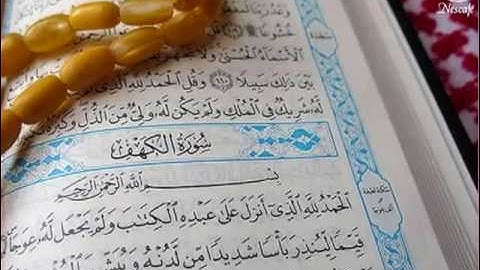 Nescafe
وَعْدُ رَبِّنَا
خُشُوعًا
الْأَسْمَاءُ الْحُسْنَىٰ وَلَا
بَيْنَ ذَٰلِكَ سَبِيلًا ١١٠ وَقُلِ الْحَمْدُ لِلَّهِ
لَّهُ شَرِيكٌ فِي الْمُلْكِ وَلَمْ يَكُن لَّهُ وَلِيٌّ مِّنَ الذُّلِّ وَكَبِّرْهُ
سُورَةُ الْكَهْفِ
بِسْمِ اللَّهِ الرَّحْمَٰنِ الرَّحِيمِ
الْحَمْدُ لِلَّهِ الَّذِي أَنزَلَ عَلَىٰ عَبْدِهِ الْكِتَابَ وَلَمْ يَجْعَل لَّهُ عِوَجًا
قَيِّمًا لِّيُنذِرَ بَأْسًا شَدِيدًا مِّن لَّدُنْهُ وَيُبَشِّرَ